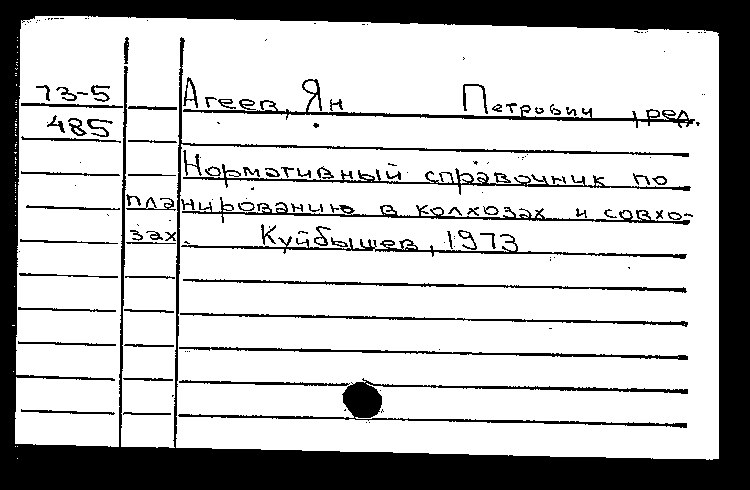 73-5 Агеев, Ян Петрович, ред.
485
Нормативный справочник по
планированию в колхозах и совхо-
зах. Куйбышев, 1973